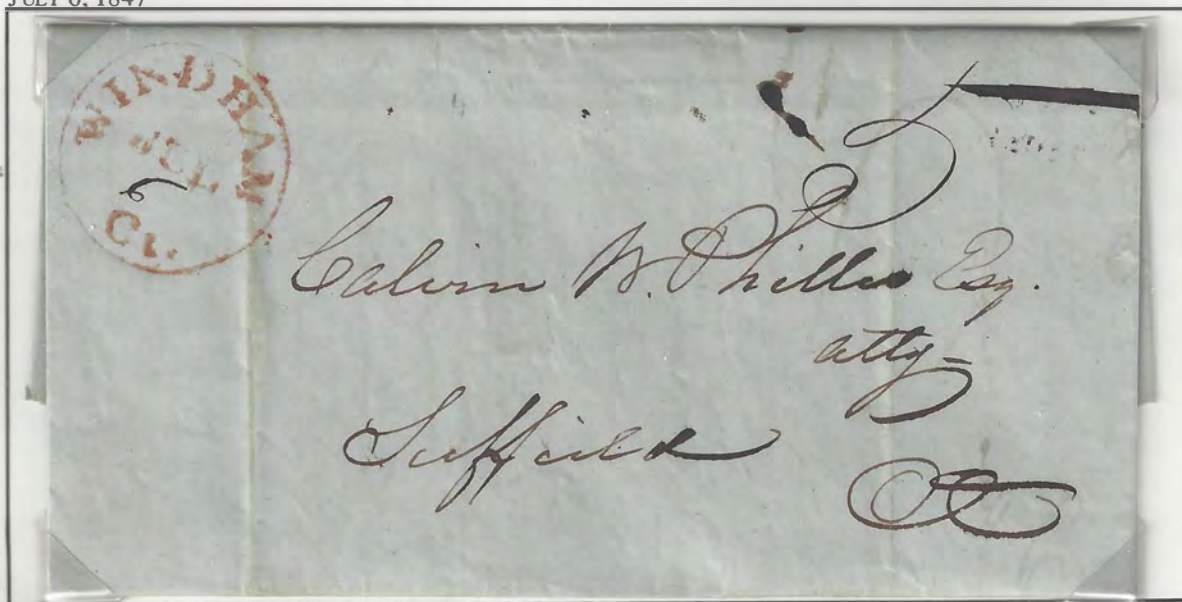 JULY 6, 1847
WINDHAM
JUL
6
Ct.
5
Calvin W. Philleo Esq.
atty=
Suffield
Ct